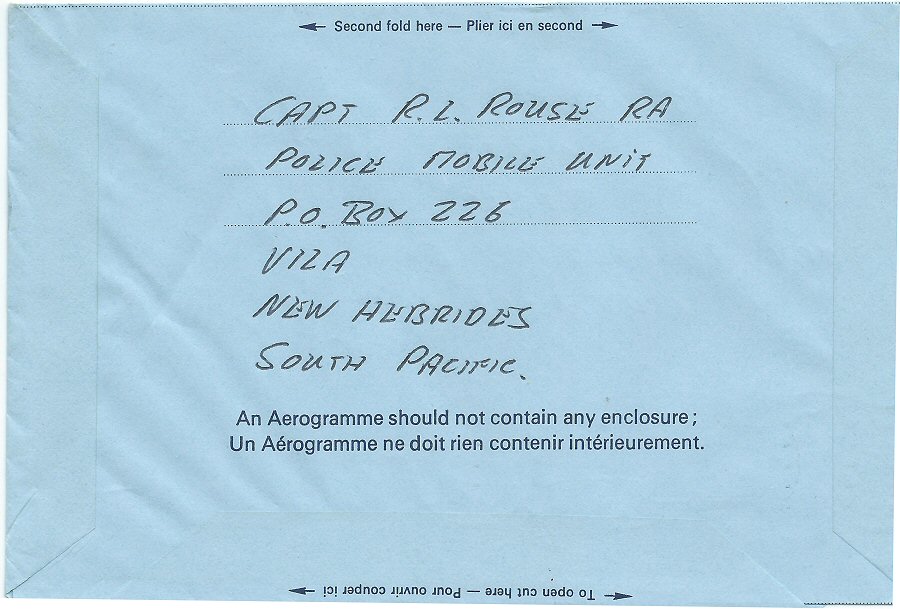 Second fold here — Plier ici en second
CAPT R.L. ROUSE RA
POLICE MOBILE UNIT
P.O. BOX 226
VILA
NEW HEBRIDES
SOUTH PACIFIC.
An Aerogramme should not contain any enclosure;
Un Aérogramme ne doit rien contenir intérieurement.
To open cut here — Pour ouvrir couper ici